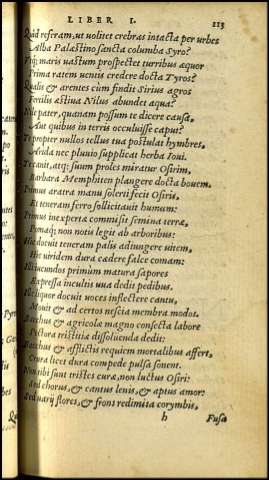 LIBER I. 113
Quid referam, ut uolitet crebras intacta per urbes
Alba Palæstino sancta columba Syro?
Utq; maris uastum prospectet turribus æquor
Prima ratem uentis credere docta Tyros?
Qualis & arentes cum findit Sirius agros
Fertilis æstiua Nilus abundet aqua?
Nile pater, quanam possum te dicere causa,
Aut quibus in terris occuluisse caput?
Te propter nullos tellus tua postulat hymbres,
Arida nec pluuio supplicat herba Ioui.
Te canit, atq; suum proles miratur Osirim,
Barbara Memphiten plangere docta bouem.
Primus aratra manu solerti fecit Osiris,
Et teneram ferro sollicitauit humum:
Primus inexpertæ commisit semina terræ,
Pomaq; non notis legit ab arboribus:
Hic docuit teneram palis adiungere uitem,
Hic uiridem dura cædere falce comam:
Illi iucundos primum matura sapores
Expressa incultis uua dedit pedibus.
Ille liquor docuit uoces inflectere cantu,
Mouit & ad certos nescia membra modos.
Bacchus & agricolæ magno confecta labore
Pectora tristitiæ dissoluenda dedit:
Bacchus & afflictis requiem mortalibus affert,
Crura licet dura compede pulsa sonent.
Non tibi sunt tristes curæ, non luctus Osiri:
Sed chorus, & cantus lenis, & aptus amor:
Sed uarij flores, & frons redimita corymbis,
h Fusa